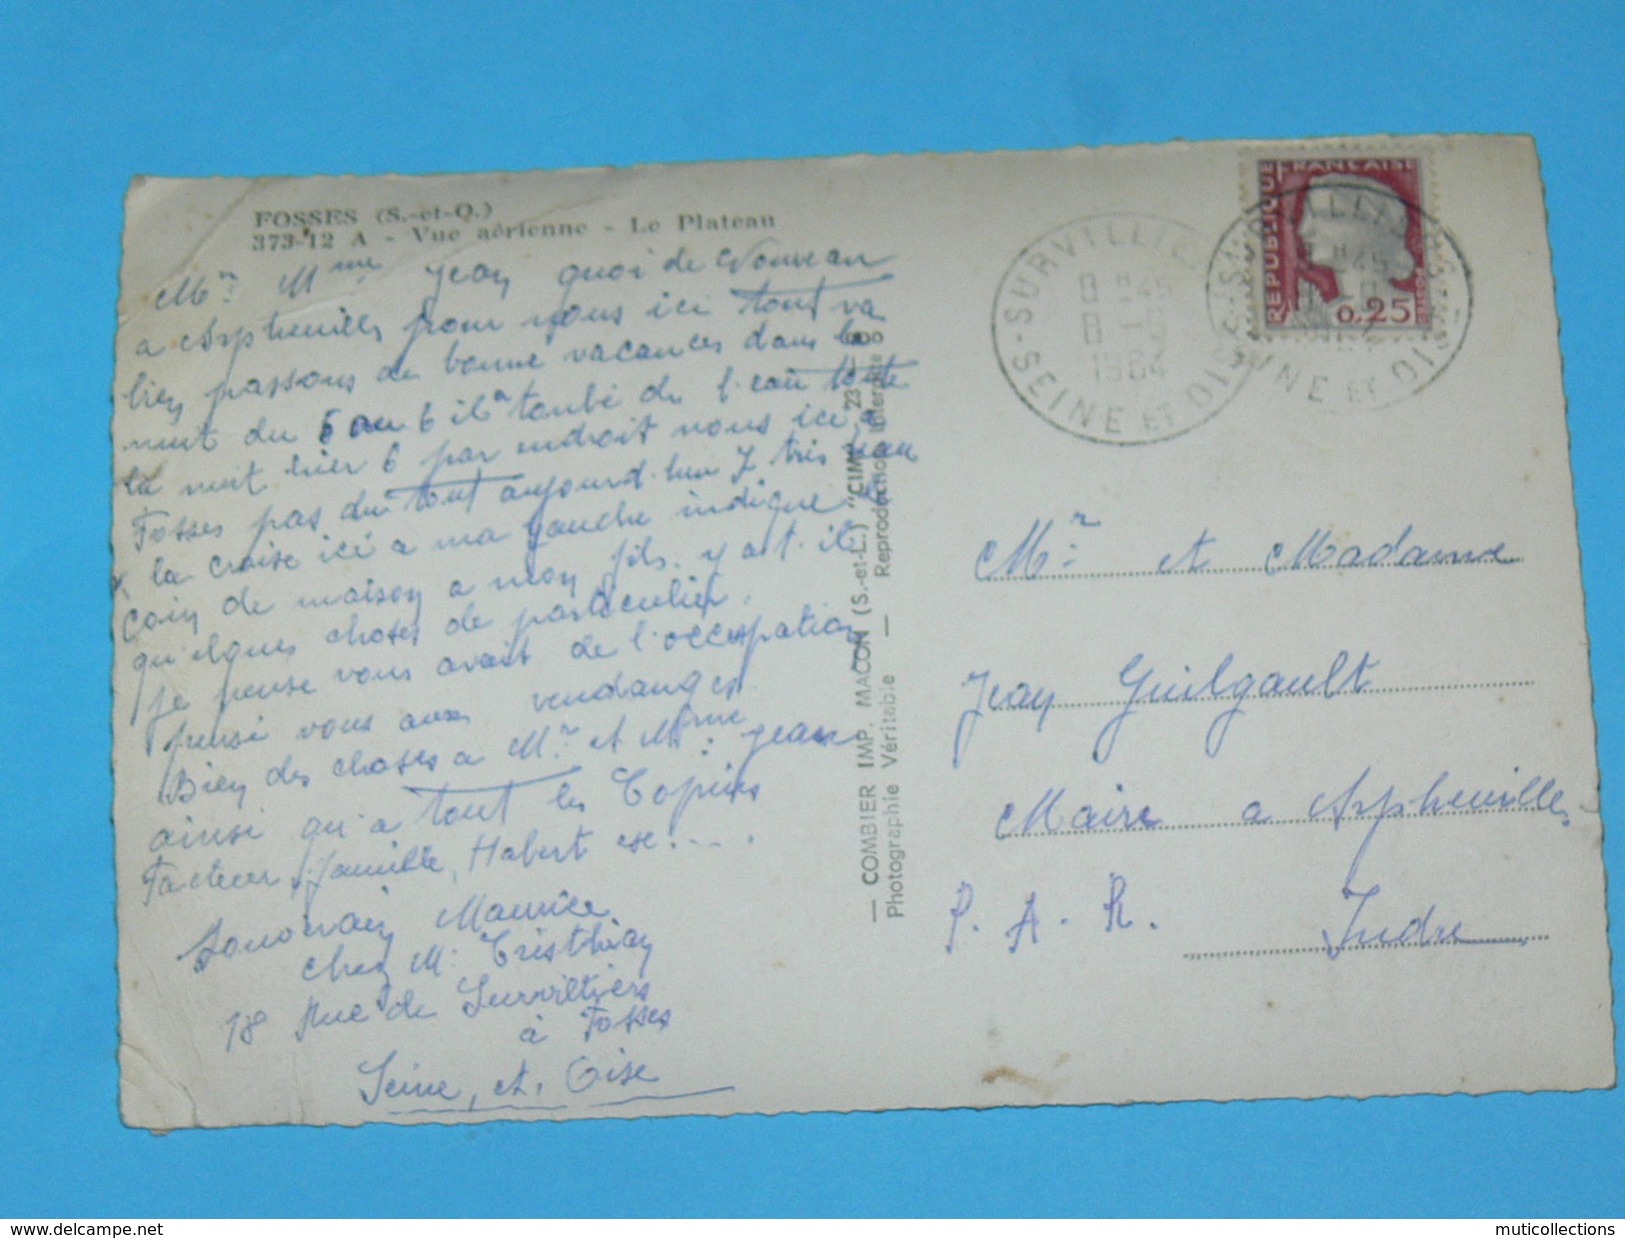 FOSSES (S.-et-O.)
373-12 A - Vue aérienne - Le Plateau
Mr. Mme Jean quoi de Nouveau
a Arpheuilles pour nous ici tout va
bien passons de bonne vacances dans la
nuit du 5 au 6 il a tombé de l'eau toute
la nuit hier 6 par endroit nous ici a
Fosses pas du tout aujourd'hui 7 très beau
x la croise ici a ma gauche indique le
coin de maison a mon fils. y a t. il
qu'elques choses de particulier.
je pense vous avait de l'occupation
pensé vous aux vendanges
Bien des choses a Mr. et Mme: jean
ainsi qu'a tout les Copins
Facteur, famille, Habert ese!....
Maurice
chez M. Cristhian
18 Rue de Survilliers
à Fosses
Seine, et, Oise
— COMBIER IMP. MACON (S.-et-L.) "CIM"
Photographie Véritable — Reproduction Interdite
SURVILLIE
8 H45
1964
SEINE ET OISE
REPUBLIQUE FRANÇAISE
0,25
DECARIS
Mr. et Madame
Jean Guilgault
Maire a Arpheuilles
P. A. R. Indre
© www.delcampe.net
muticollections